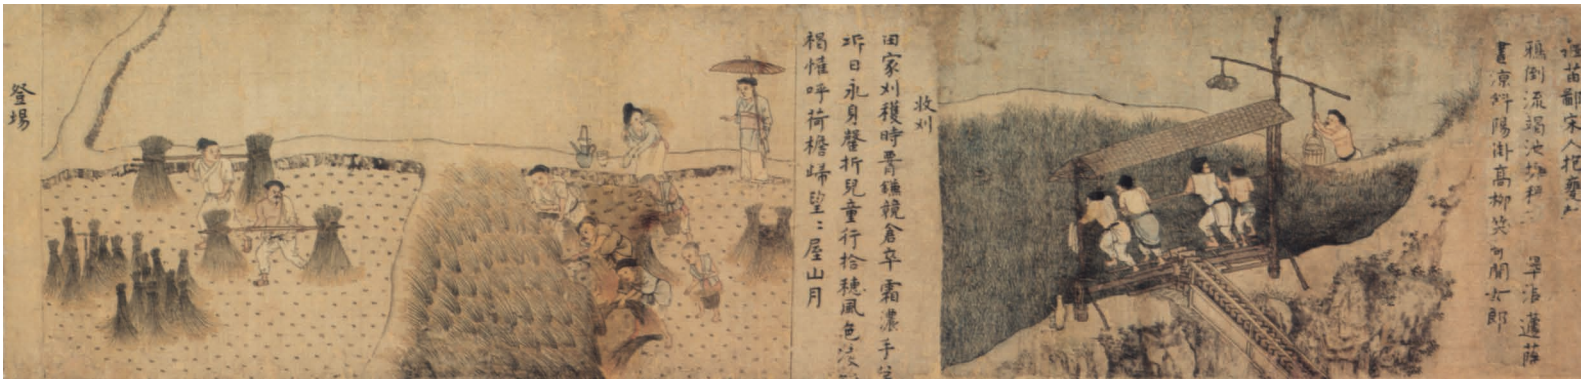 苗鄙宋人抱甕
鴉倒流竭池塘
晝凉斜陽掛高柳笑間女郎
收刈
田家刈穫時腰鎌競倉卒霜濃手
坼日永身罄折兒童行拾穗風色凌
褐懽呼荷檐歸望〻屋山月
登場